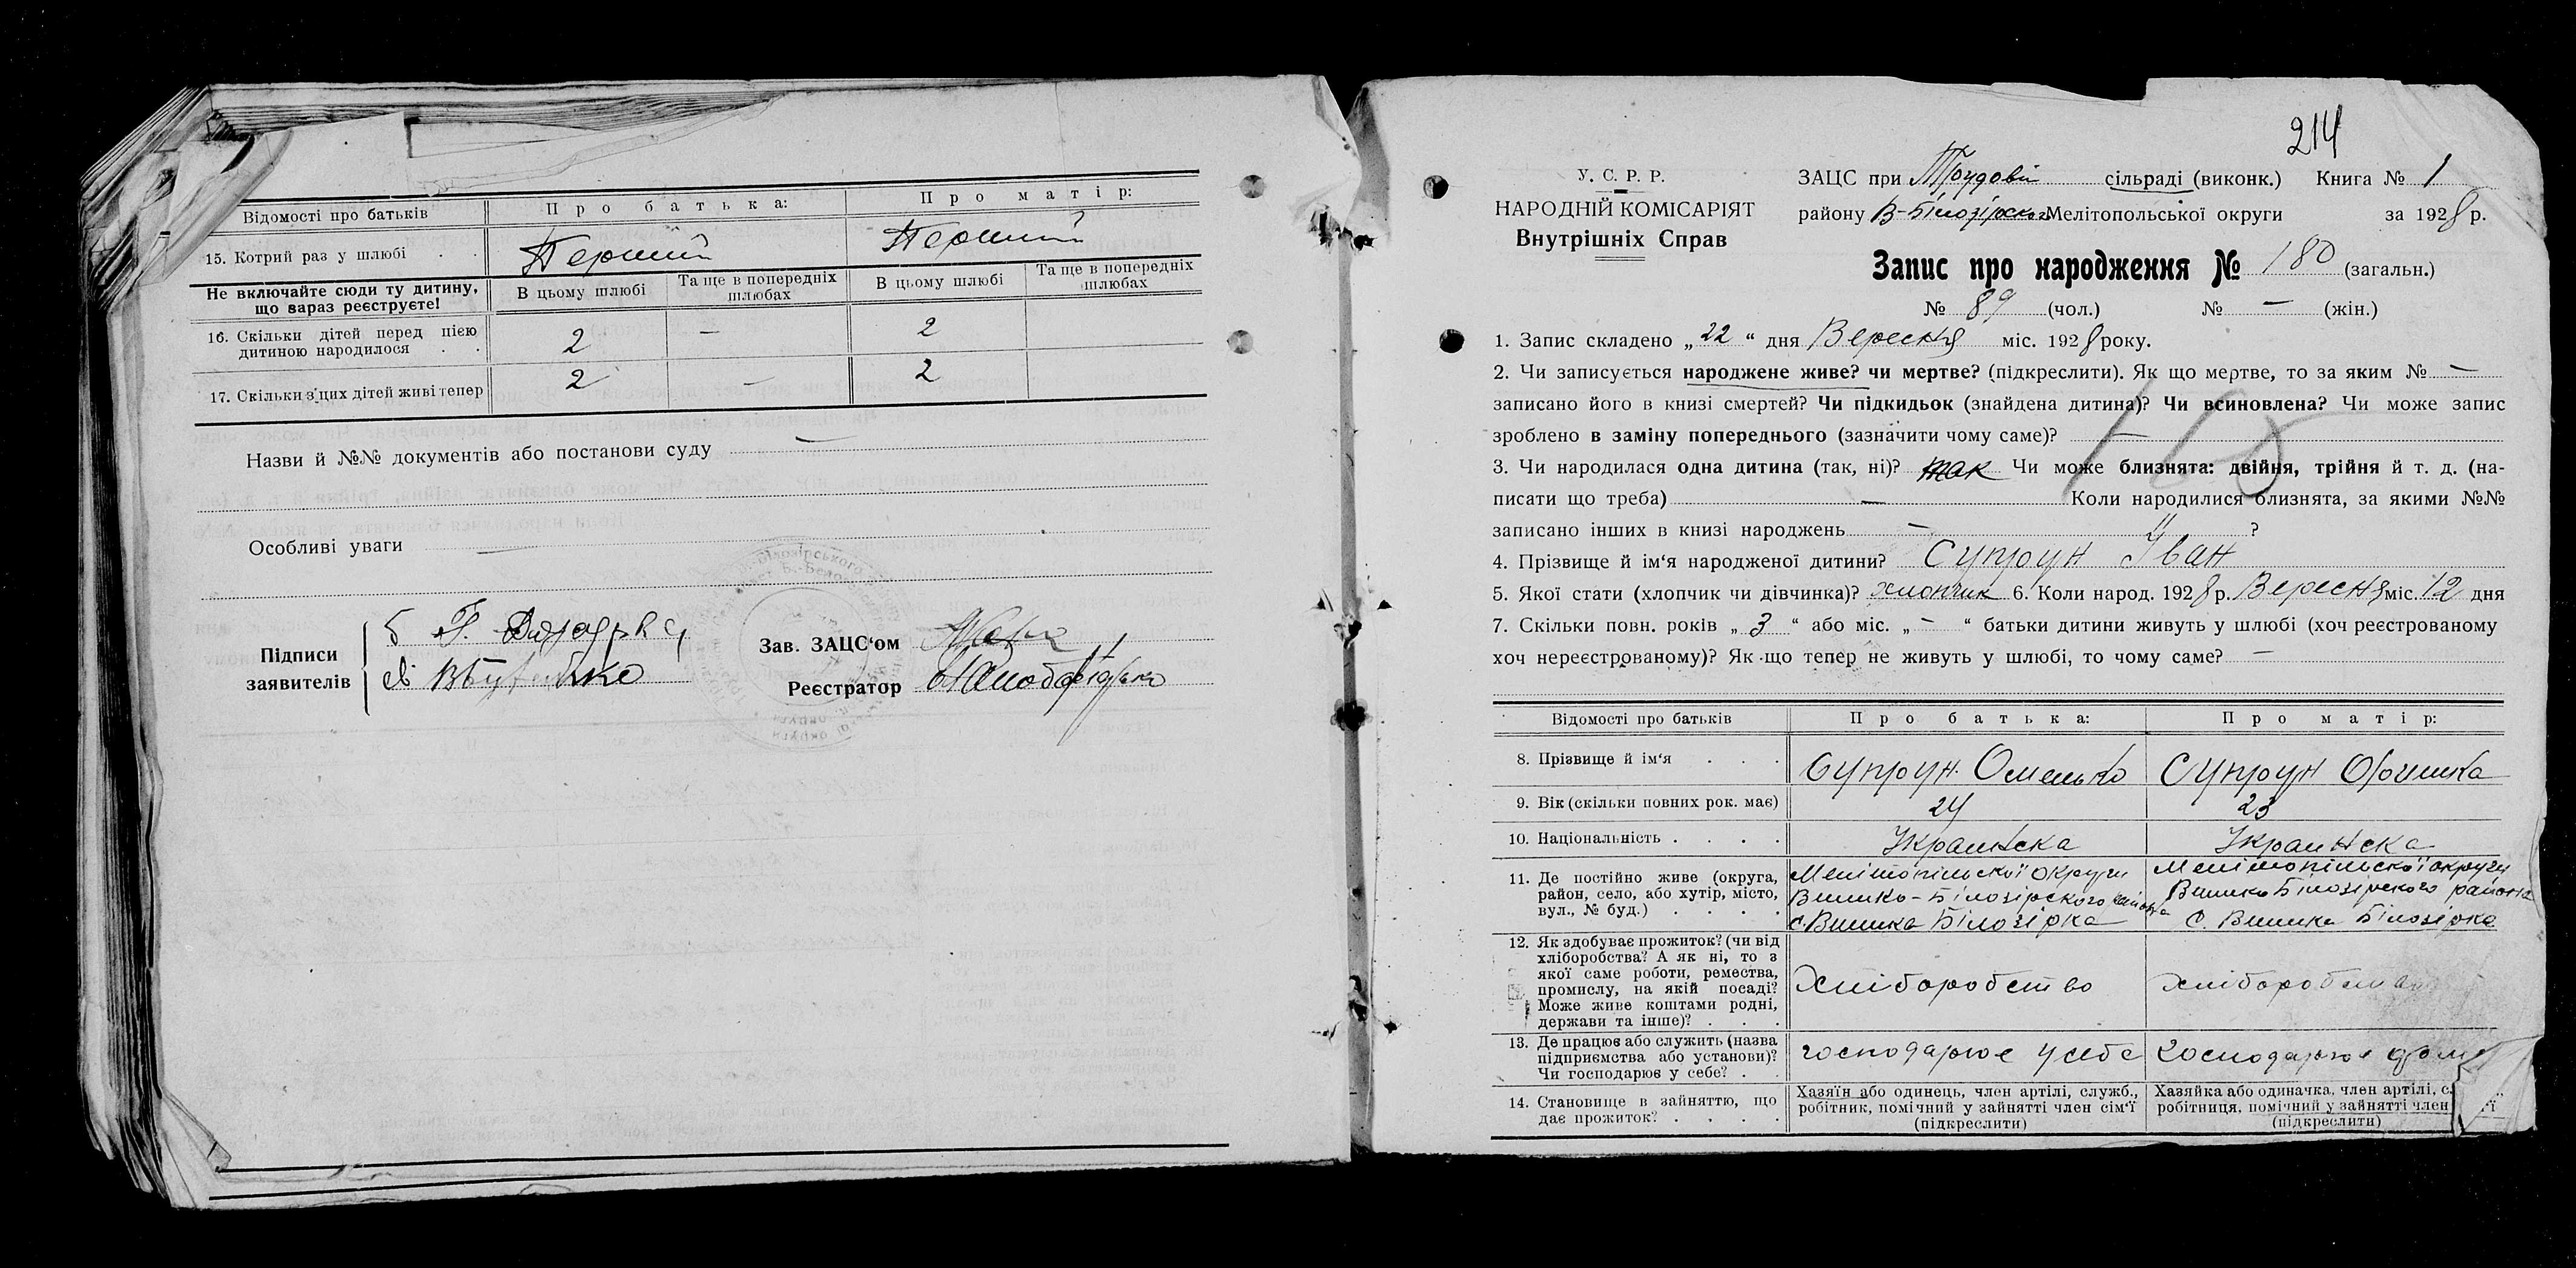 Відомості про батьків
Про батька:
Про матір:
15. Котрий раз у шлюбі . .
Перший
Перший
Не включайте сюди ту дитину, що зараз реєструєте!
В цьому шлюбі
Та ще в попередніх шлюбах
В цьому шлюбі
Та ще в попередніх шлюбах
16. Скільки дітей перед цією
дитиною народилося . .
2
—
2
17. Скільки з цих дітей живі тепер
2
—
2
Назви й №№ документів або постанови суду —
Особливі уваги —
Підписи
заявителів
Зав. ЗАЦС'ом
Реєстратор
214
У. С. Р. Р.
НАРОДНІЙ КОМІСАРІЯТ
Внутрішніх Справ
ЗАЦС при Трудовій сільраді (виконк.) Книга № 1
району В-Білозірськ Мелітопольської округи за 1928 р.
Запис про народження № 180 (загальн.)
№ 89 (чол.) № — (жін.)
1. Запис складено „22“ дня Вересня міс. 1928 року.
2. Чи записується народжене живе? чи мертве? (підкреслити). Як що мертве, то за яким № —
записано його в книзі смертей? Чи підкидьок (знайдена дитина)? Чи всиновлена? Чи може запис
зроблено в заміну попереднього (зазначити чому саме)? —
3. Чи народилася одна дитина (так, ні)? так Чи може близнята: двійня, трійня й т. д. (на-
писати що треба) — Коли народилися близнята, за якими №№
записано інших в книзі народжень — ?
4. Прізвище й ім'я народженої дитини? Супрун Іван
5. Якої стати (хлопчик чи дівчинка)? хлопчик 6. Коли народ. 1928 р. Вересня міс. 12 дня
7. Скільки повн. років „3“ або міс. „—“ батьки дитини живуть у шлюбі (хоч реєстрованому
хоч нереєстрованому)? Як що тепер не живуть у шлюбі, то чому саме? —
Відомості про батьків
Про батька:
Про матір:
8. Прізвище й ім'я . . .
Супрун Омелько
Супрун Оришка
9. Вік (скільки повних рок. має)
24
23
10. Національність . . . .
Украінска
Украінска
11. Де постійно живе (округа,
район, село, або хутір, місто,
вул., № буд.) . . . .
Мелітопільскої округи
Велико-Білозірского района
с. Велика Білозірка
Мелітопільскої округи
Велико Білозірского района
С. Велика Білозірка
12. Як здобуває прожиток? (чи від
хліборобства? А як ні, то з
якої саме роботи, ремества,
промислу, на якій посаді?
Може живе коштами родні,
держави та інше)? . . .
Хліборобство
13. Де працює або служить (назва
підприємства або установи)?
Чи господарює у себе? . .
господарює у себе
господарює
14. Становище в зайняттю, що
дає прожиток? . . . .
Хазяїн або одинець, член артілі, служб.,
робітник, помічний у зайнятті член сім'ї
(підкреслити)
Хазяйка або одиначка, член артілі,
робітниця, помічний у зайнятті член
(підкреслити)